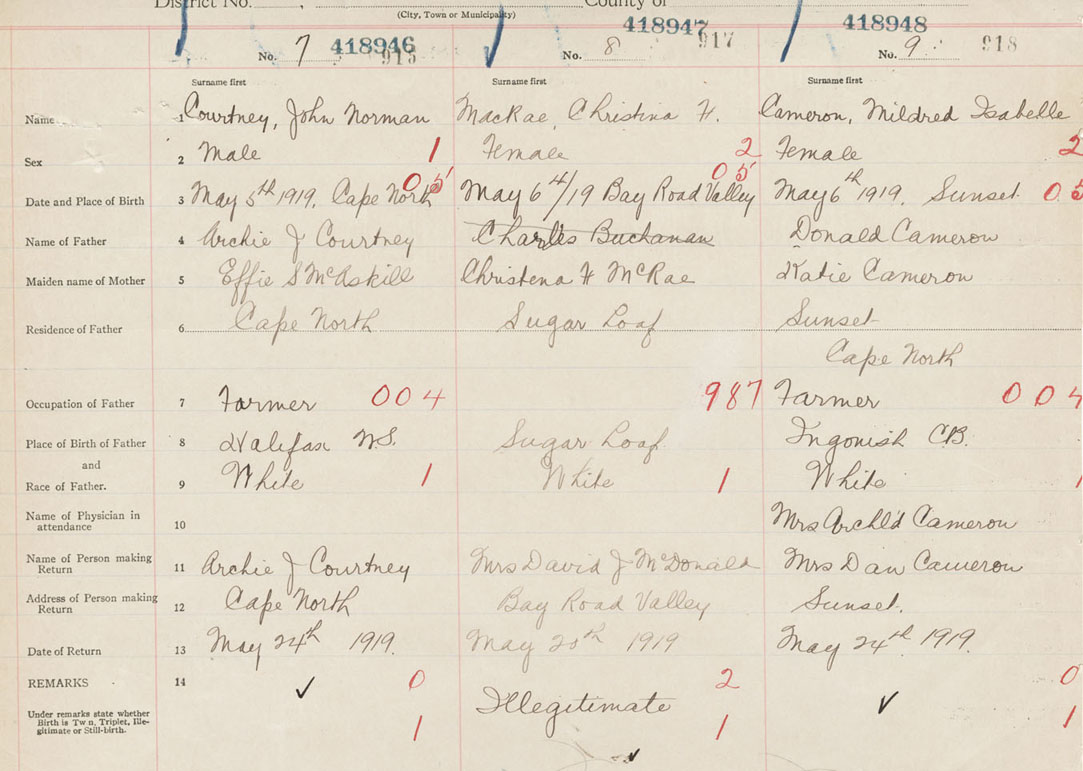 District No. , County of
(City, Town or Municipality)
418946 418947 418948
No. 7 915 No. 8 917 No. 9 918
Surname first Surname first Surname first
Name 1 Courtney, John Norman MacRae, Christina F. Cameron, Mildred Isabelle
Sex 2 Male 1 Female 2 Female 2
05 05
Date and Place of Birth 3 May 5th 1919. Cape North May 6th/19 Bay Road Valley May 6th 1919, Sunset 05
Name of Father 4 Archie J Courtney Charles Buchanan Donald Cameron
Maiden name of Mother 5 Effie S McAskill Christena F McRae Katie Cameron
Residence of Father 6 Cape North Sugar Loaf Sunset
Cape North
Occupation of Father 7 Farmer 004 987 Farmer 004
Place of Birth of Father 8 Halifax N.S. Sugar Loaf Ingonish C.B.
and
Race of Father. 9 White 1 White 1 White 1
Name of Physician in
attendance 10 Mrs Archl'd Cameron
Name of Person making
Return 11 Archie J Courtney Mrs David J McDonald Mrs Dan Cameron
Address of Person making
Return 12 Cape North Bay Road Valley Sunset.
Date of Return 13 May 24th 1919. May 20th 1919 May 24th 1919.
REMARKS 14 ✓ 0 Illegitimate 2 ✓ 0
Under remarks state whether
Birth is Twin, Triplet, Ille-
gitimate or Still-birth. 1 1 1
✓